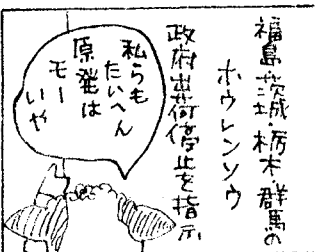 福島・茨城・栃木・群馬の
ホウレンソウ
政府出荷停止を指示
私らも
たいへん
原発は
モー
いや